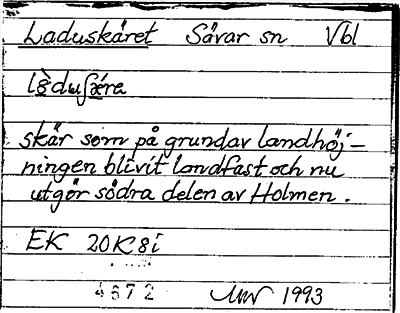 Laduskäret Sävar sn Vbl
skär som på grundav landhöj-
ningen blivit landfast och nu
utgör södra delen av Holmen.
EK 20K8i
4672 1993